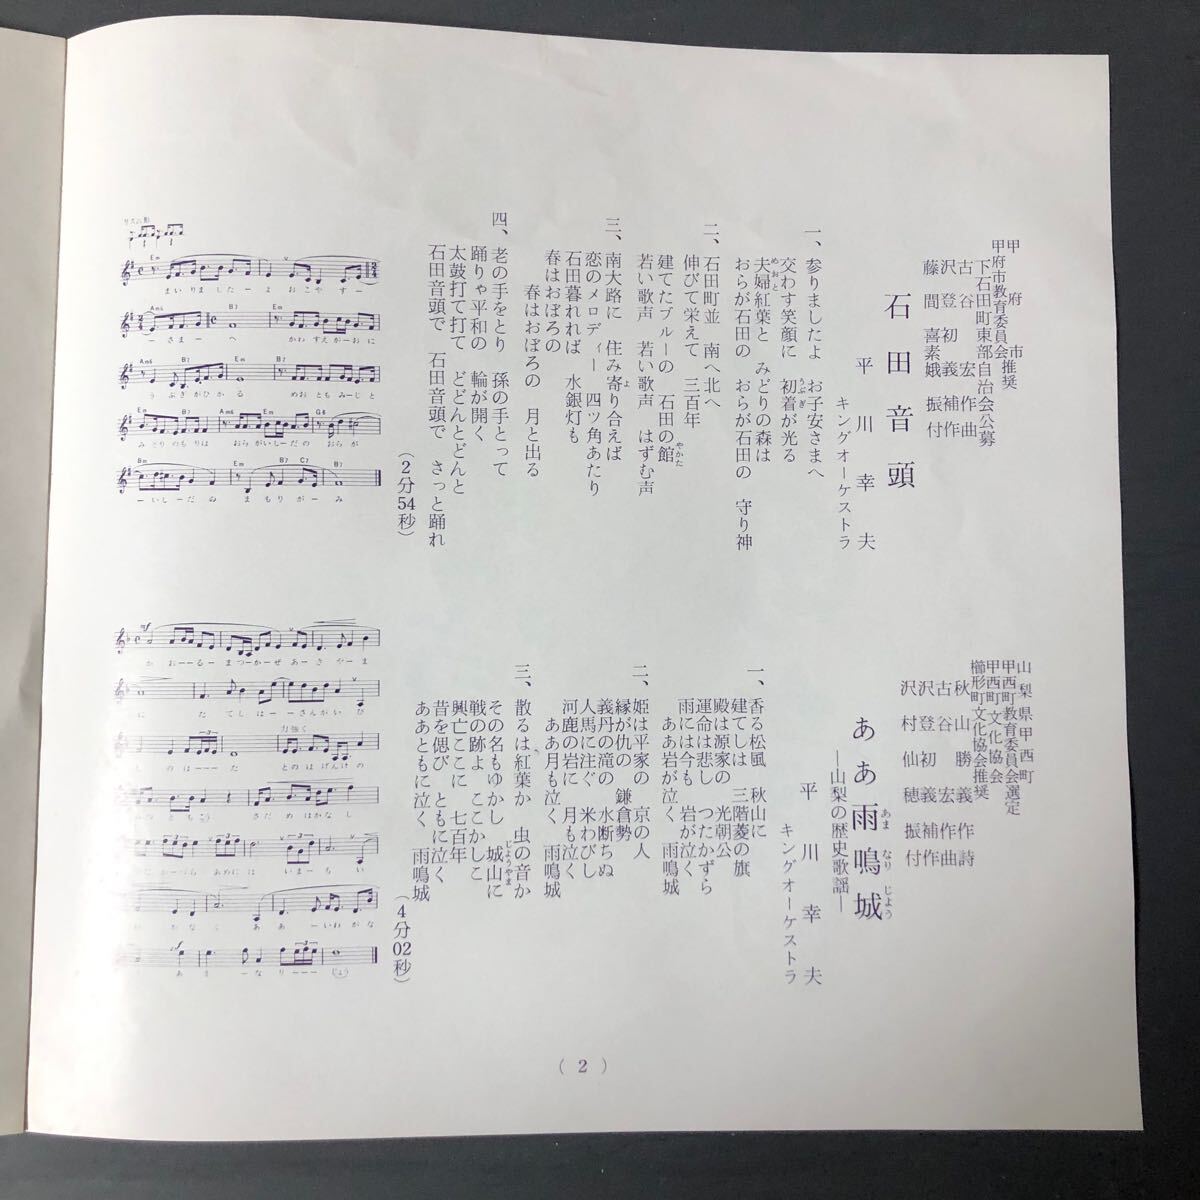 甲府市推奨
甲府市教育委員会
下石田町東部自治会公募
古谷 宏 作曲
沢登初義 補作
藤間喜素娥 振付
石田音頭
平川幸夫
キングオーケストラ
一、参りましたよ お子安さまへ
交わす笑顔に 初着が光る
うぶぎ
夫婦紅葉と みどりの森は
めおと
おらが石田の おらが石田の 守り神
二、石田町並 南へ北へ
伸びて栄えて 三百年
建てたブルーの 石田の館
やかた
若い歌声 若い歌声 はずむ声
三、南大路に 住み寄り合えば
よ
恋のメロディー 四ツ角あたり
石田暮れれば 水銀灯も
春はおぼろの
春はおぼろの 月と出る
四、老の手をとり 孫の手とって
踊りゃ平和の 輪が開く
太鼓打て打て どどんとどんと
石田音頭で 石田音頭で さっと踊れ
(2分54秒)
リズム形
Em
まいりましたーよ おこやすー
Am6 B7 Em
ーさまーへ かわすえがーおに
Am6 B7 Em
うぶぎがひかる めおともみーじと
Em B7 Am6 Em G6
みどりのもりは おらがいしーだの おらが
Em B7 C7 B7
ーいしーだの まもりがーみ
山梨県甲西町
甲西町教育委員会選定
甲西町文化協会
櫛形町文化協会推奨
秋山勝義 作詩
古谷 宏 作曲
沢登初義 補作
沢村仙穂 振付
ああ雨鳴城
あま なり じょう
―山梨の歴史歌謡―
平川幸夫
キングオーケストラ
一、香る松風 秋山に
建てしは 三階菱の旗
殿は源家の 光朝公
運命は悲し つたかずら
雨には今も 岩が泣く
ああ岩が泣く 雨鳴城
二、姫は平家の 京の人
縁が仇の 鎌倉勢
義丹の滝の 水断ちぬ
人馬に注ぐ 米わびし
河鹿の岩に 月も泣く
ああ月も泣く 雨鳴城
三、散るは紅葉か 虫の音か
その名もゆかし 城山に
じょうやま
戦の跡よ ここかしこ
興亡ここに 七百年
昔を偲び ともに泣く
ああともに泣く 雨鳴城
(4分02秒)
mf
かおーるーまつーかぜ あーきやーま
に たてしはーーさんがいび
力強く
しのはーーた とのはげんけの
さだめはかなし
あめには いまーもい
ああーいわがな
あまーなりーーー じょう
( 2 )